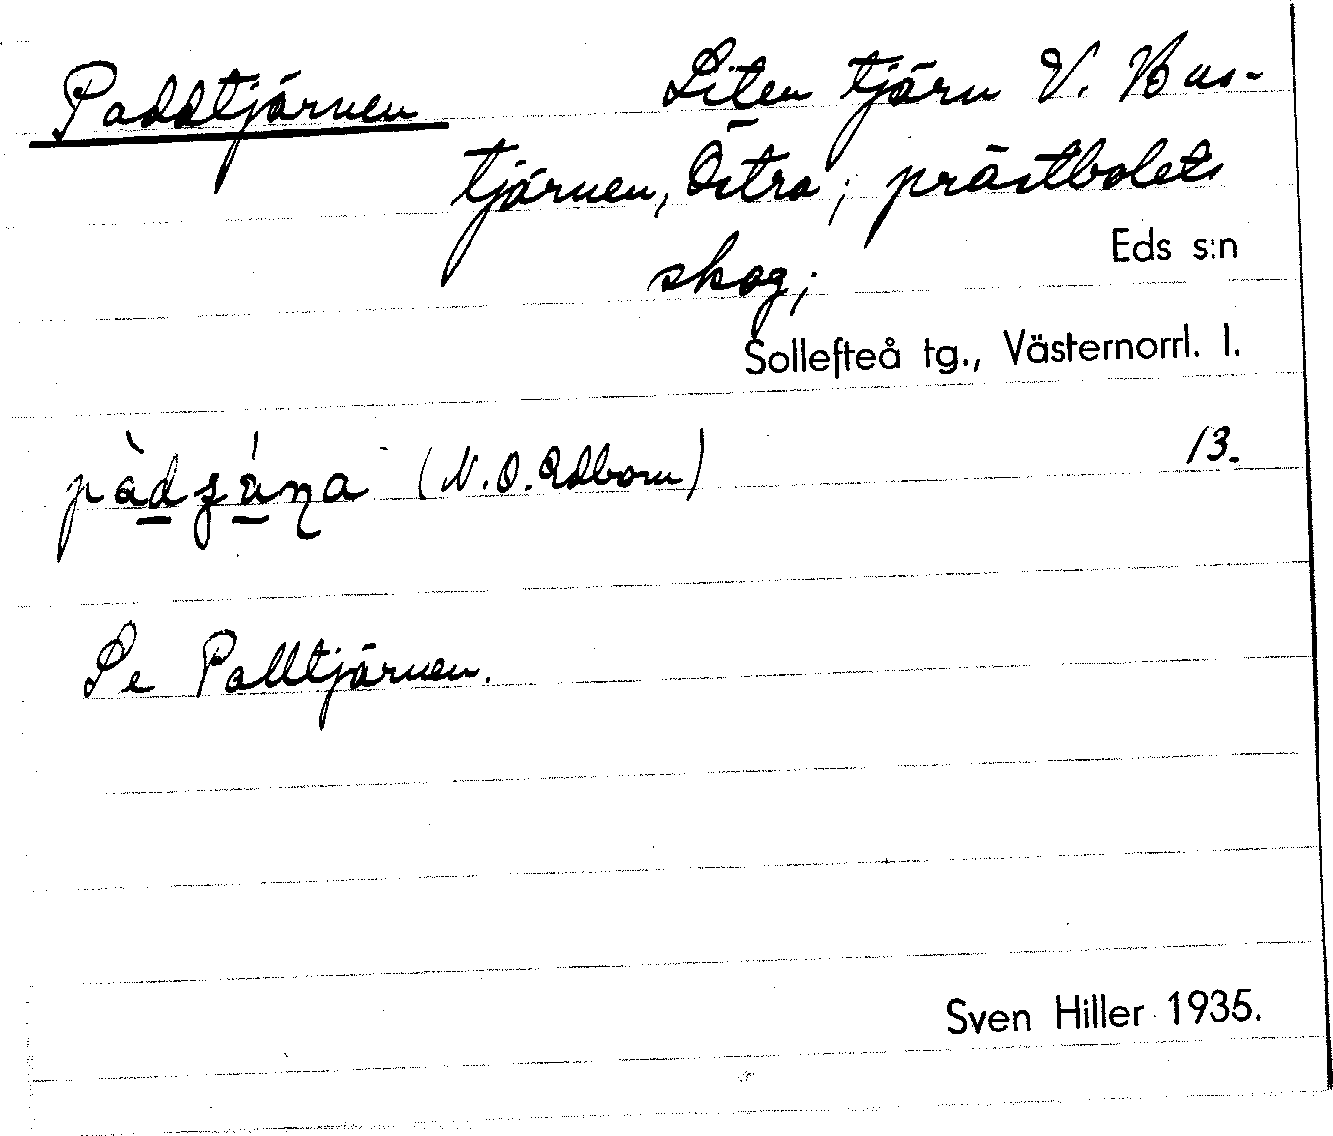 Paddtjärnen Liten tjärn V. Bus-
tjärnen, Östra; prästbolets
skog; Eds s:n
Sollefteå tg., Västernorrl. l.
(N. O. Edbom) 13.
Se Palltjärnen.
Sven Hiller 1935.